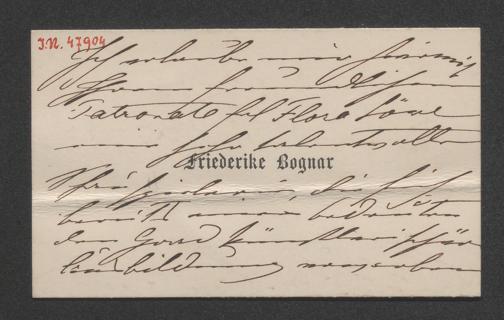 I.N. 47904
Ich erlaube mir hiermit
Ihrem freundlichen
Patronate frl Flora
eine sehr talentvolle
Friederike Bognar
die sich
bereits einen bedeutenden
den Grad künstlerischer
Ausbildung erworben